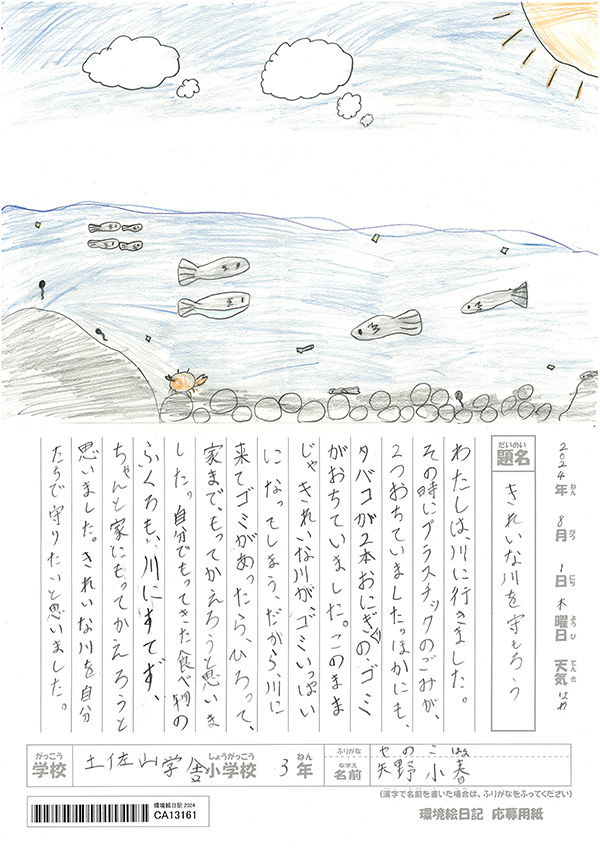 2024年ねん 8月がつ 1日にち 木曜日ようび 天気てんき はれ
題名だいめい きれいな川を守もろう
わたしは、川に行きました。
その時にプラスチックのごみが、
2つおちていましたっほかにも、
タバコが2本おにぎりの、ゴミ
がおちていました。このまま
じゃきれいな川が、ゴミいっぱい
になってしまう、だから、川に
来てゴミがあったら、ひろって、
家まで、もってかえろうと思いま
したっ自分でもってきた食べ物の
ふくろも、川にすてず、
ちゃんと家にもってかえろうと
思いました。きれいな川を自分
たちで守りたいと思いました。
がっこう しょうがっこう ねん ふりがな やのこ
学校 土佐山学舎小学校 3年 なまえ 名前 矢野小春
(漢字で名前を書いた場合は、ふりがなをふってください)
環境絵日記 2024
CA13161
環境絵日記 応募用紙